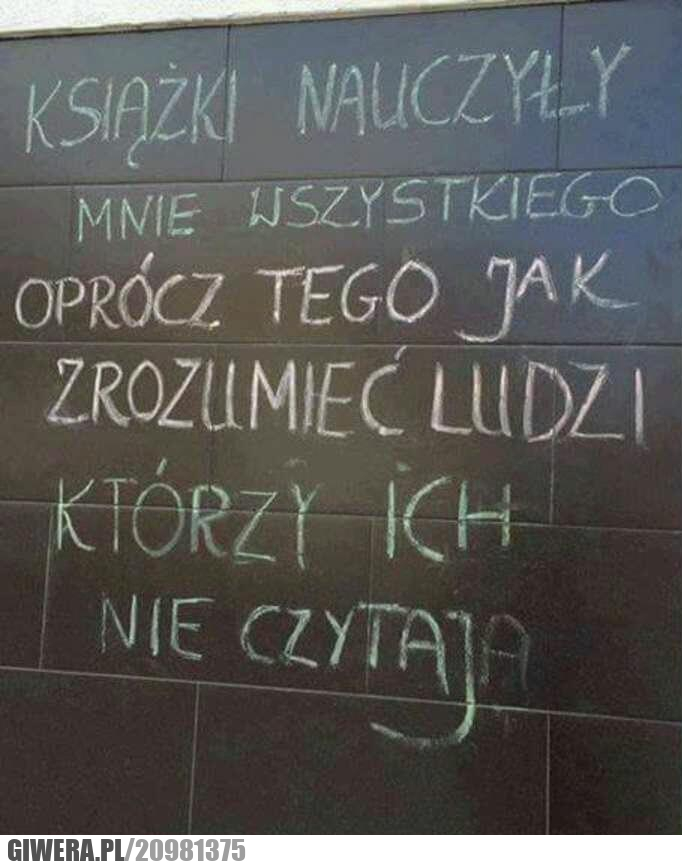 KSIĄŻKI NAUCZYŁY
MNIE WSZYSTKIEGO
OPRÓCZ TEGO JAK
ZROZUMIEĆ LUDZI
KTÓRZY ICH
NIE CZYTAJA
GIWERA.PL/20981375